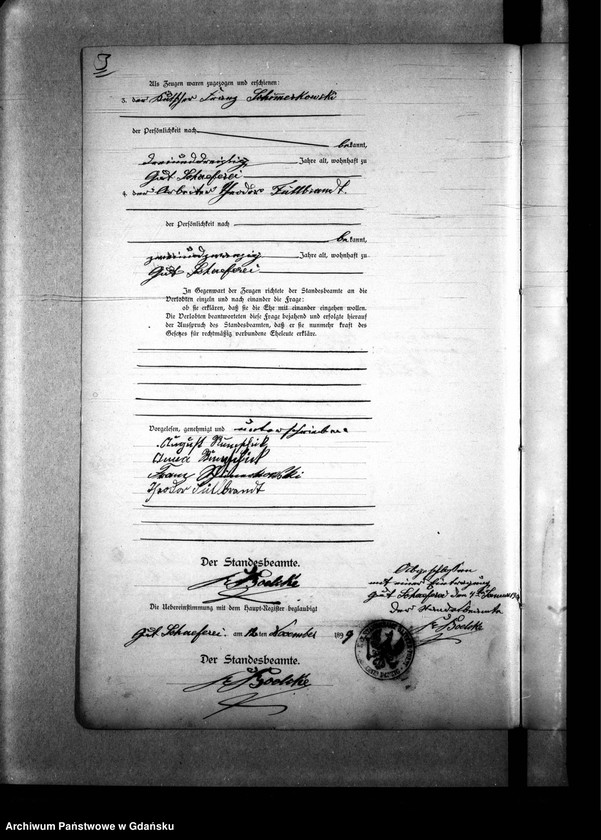 Als Zeugen waren zugezogen und erschienen:
3. der Kutscher Franz Schimerkowski
der Persönlichkeit nach
bekannt,
dreiunddreißig Jahre alt, wohnhaft zu
Gut Schaeferei
4. der Arbeiter Theodor Füllbrandt.
der Persönlichkeit nach
bekannt,
zweiundzwanzig Jahre alt, wohnhaft zu
Gut Schaeferei
In Gegenwart der Zeugen richtete der Standesbeamte an die
Verlobten einzeln und nach einander die Frage:
ob sie erklären, daß sie die Ehe mit einander eingehen wollen.
Die Verlobten beantworteten diese Frage bejahend und erfolgte hierauf
der Ausspruch des Standesbeamten, daß er sie nunmehr kraft des
Gesetzes für rechtmäßig verbundene Eheleute erkläre.
Vorgelesen, genehmigt und unterschrieben
August
Anna
Franz
Theodor Füllbrandt
Der Standesbeamte.
Boelcke
Die Uebereinstimmung mit dem Haupt-Register beglaubigt
Gut Schaeferei. am ten Dezember 1899
Der Standesbeamte.
Boelcke
Abgeschlossen
mit einer Eintragung
Gut Schaeferei den Januar
Der Standesbeamte
Boelcke
Archiwum Państwowe w Gdańsku